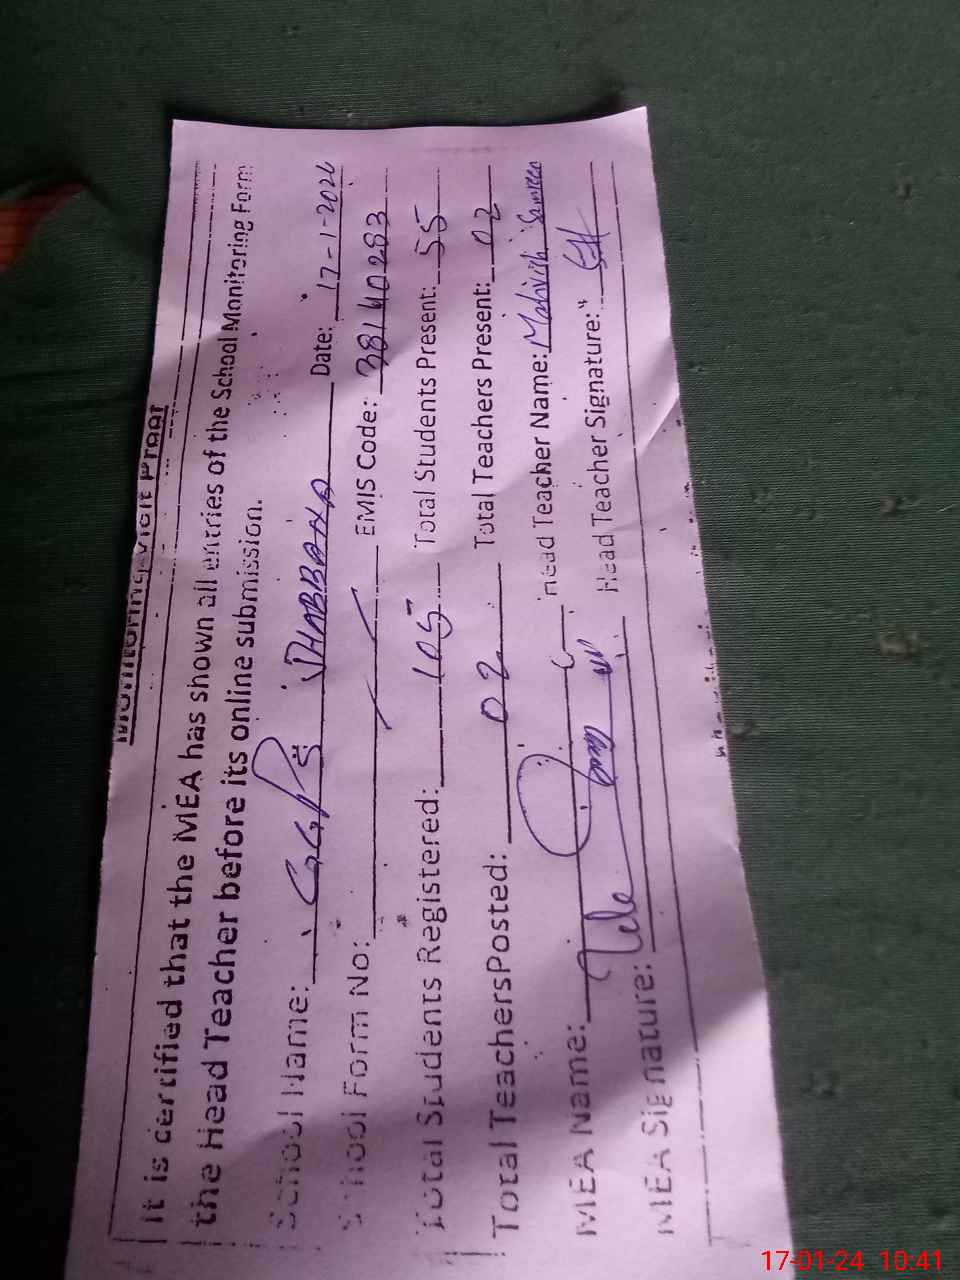 Monitoring Visit Proof
It is certified that the MEA has shown all entries of the School Monitoring Form
the Head Teacher before its online submission.
School Name: GGPS JHABBANA Date: 17-1-2024
School Form No: EMIS Code: 38140283
Total Students Registered: 105 Total Students Present: 55
Total Teachers Posted: 02 Total Teachers Present: 02
MEA Name: Head Teacher Name: Mahvish Samreen
MEA Signature: Head Teacher Signature:
17-01-24 10:41